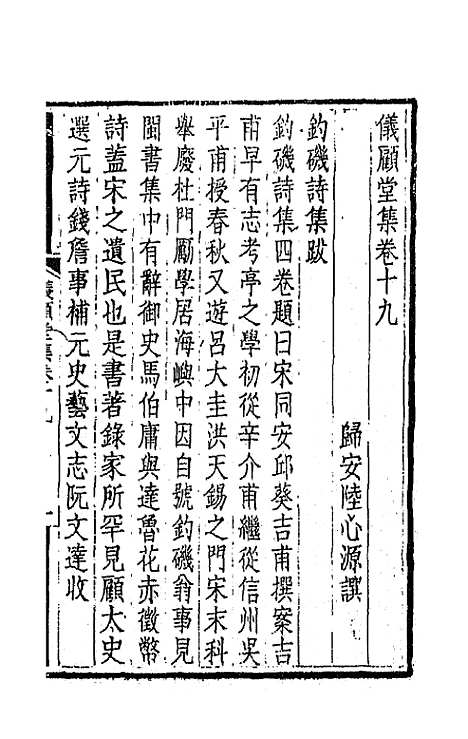 儀顧堂集卷十九
歸安陸心源譔
釣磯詩集跋
釣磯詩集四卷題曰宋同安邱葵吉甫撰案吉
甫早有志考亭之學初從辛介甫繼從信州吳
平甫授春秋又遊呂大圭洪天錫之門宋末科
舉廢杜門勵學居海嶼中因自號釣磯翁事見
閩書集中有辭御史馬伯庸與達魯花赤徵幣
詩蓋宋之遺民也是書著錄家所罕見顧太史
選元詩錢詹事補元史藝文志阮文達收
儀顧堂集卷十九